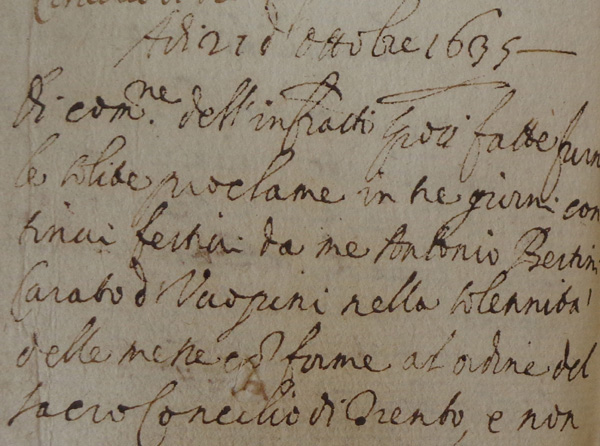 Adi 21 d'ottobre 1635
Di com.ne dell'infratti sposi fatte furn
le solite proclame in tre giorni con
tinui festivi da me Antonio Bertini
Curato di Vaopini nella solennità
delle messe conforme al ordine del
sacro Concilio di Trento, e non